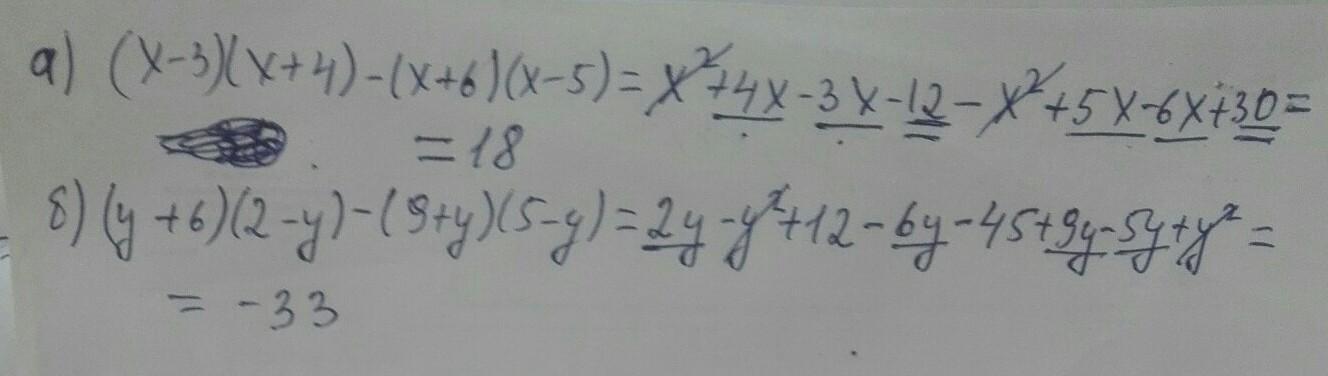 а) (x-3)(x+4)-(x+6)(x-5)=x²+4x-3x-12-x²+5x-6x+30=
=18
б) (y+6)(2-y)-(9+y)(5-y)=2y-y²+12-6y-45+9y-5y+y²=
= -33